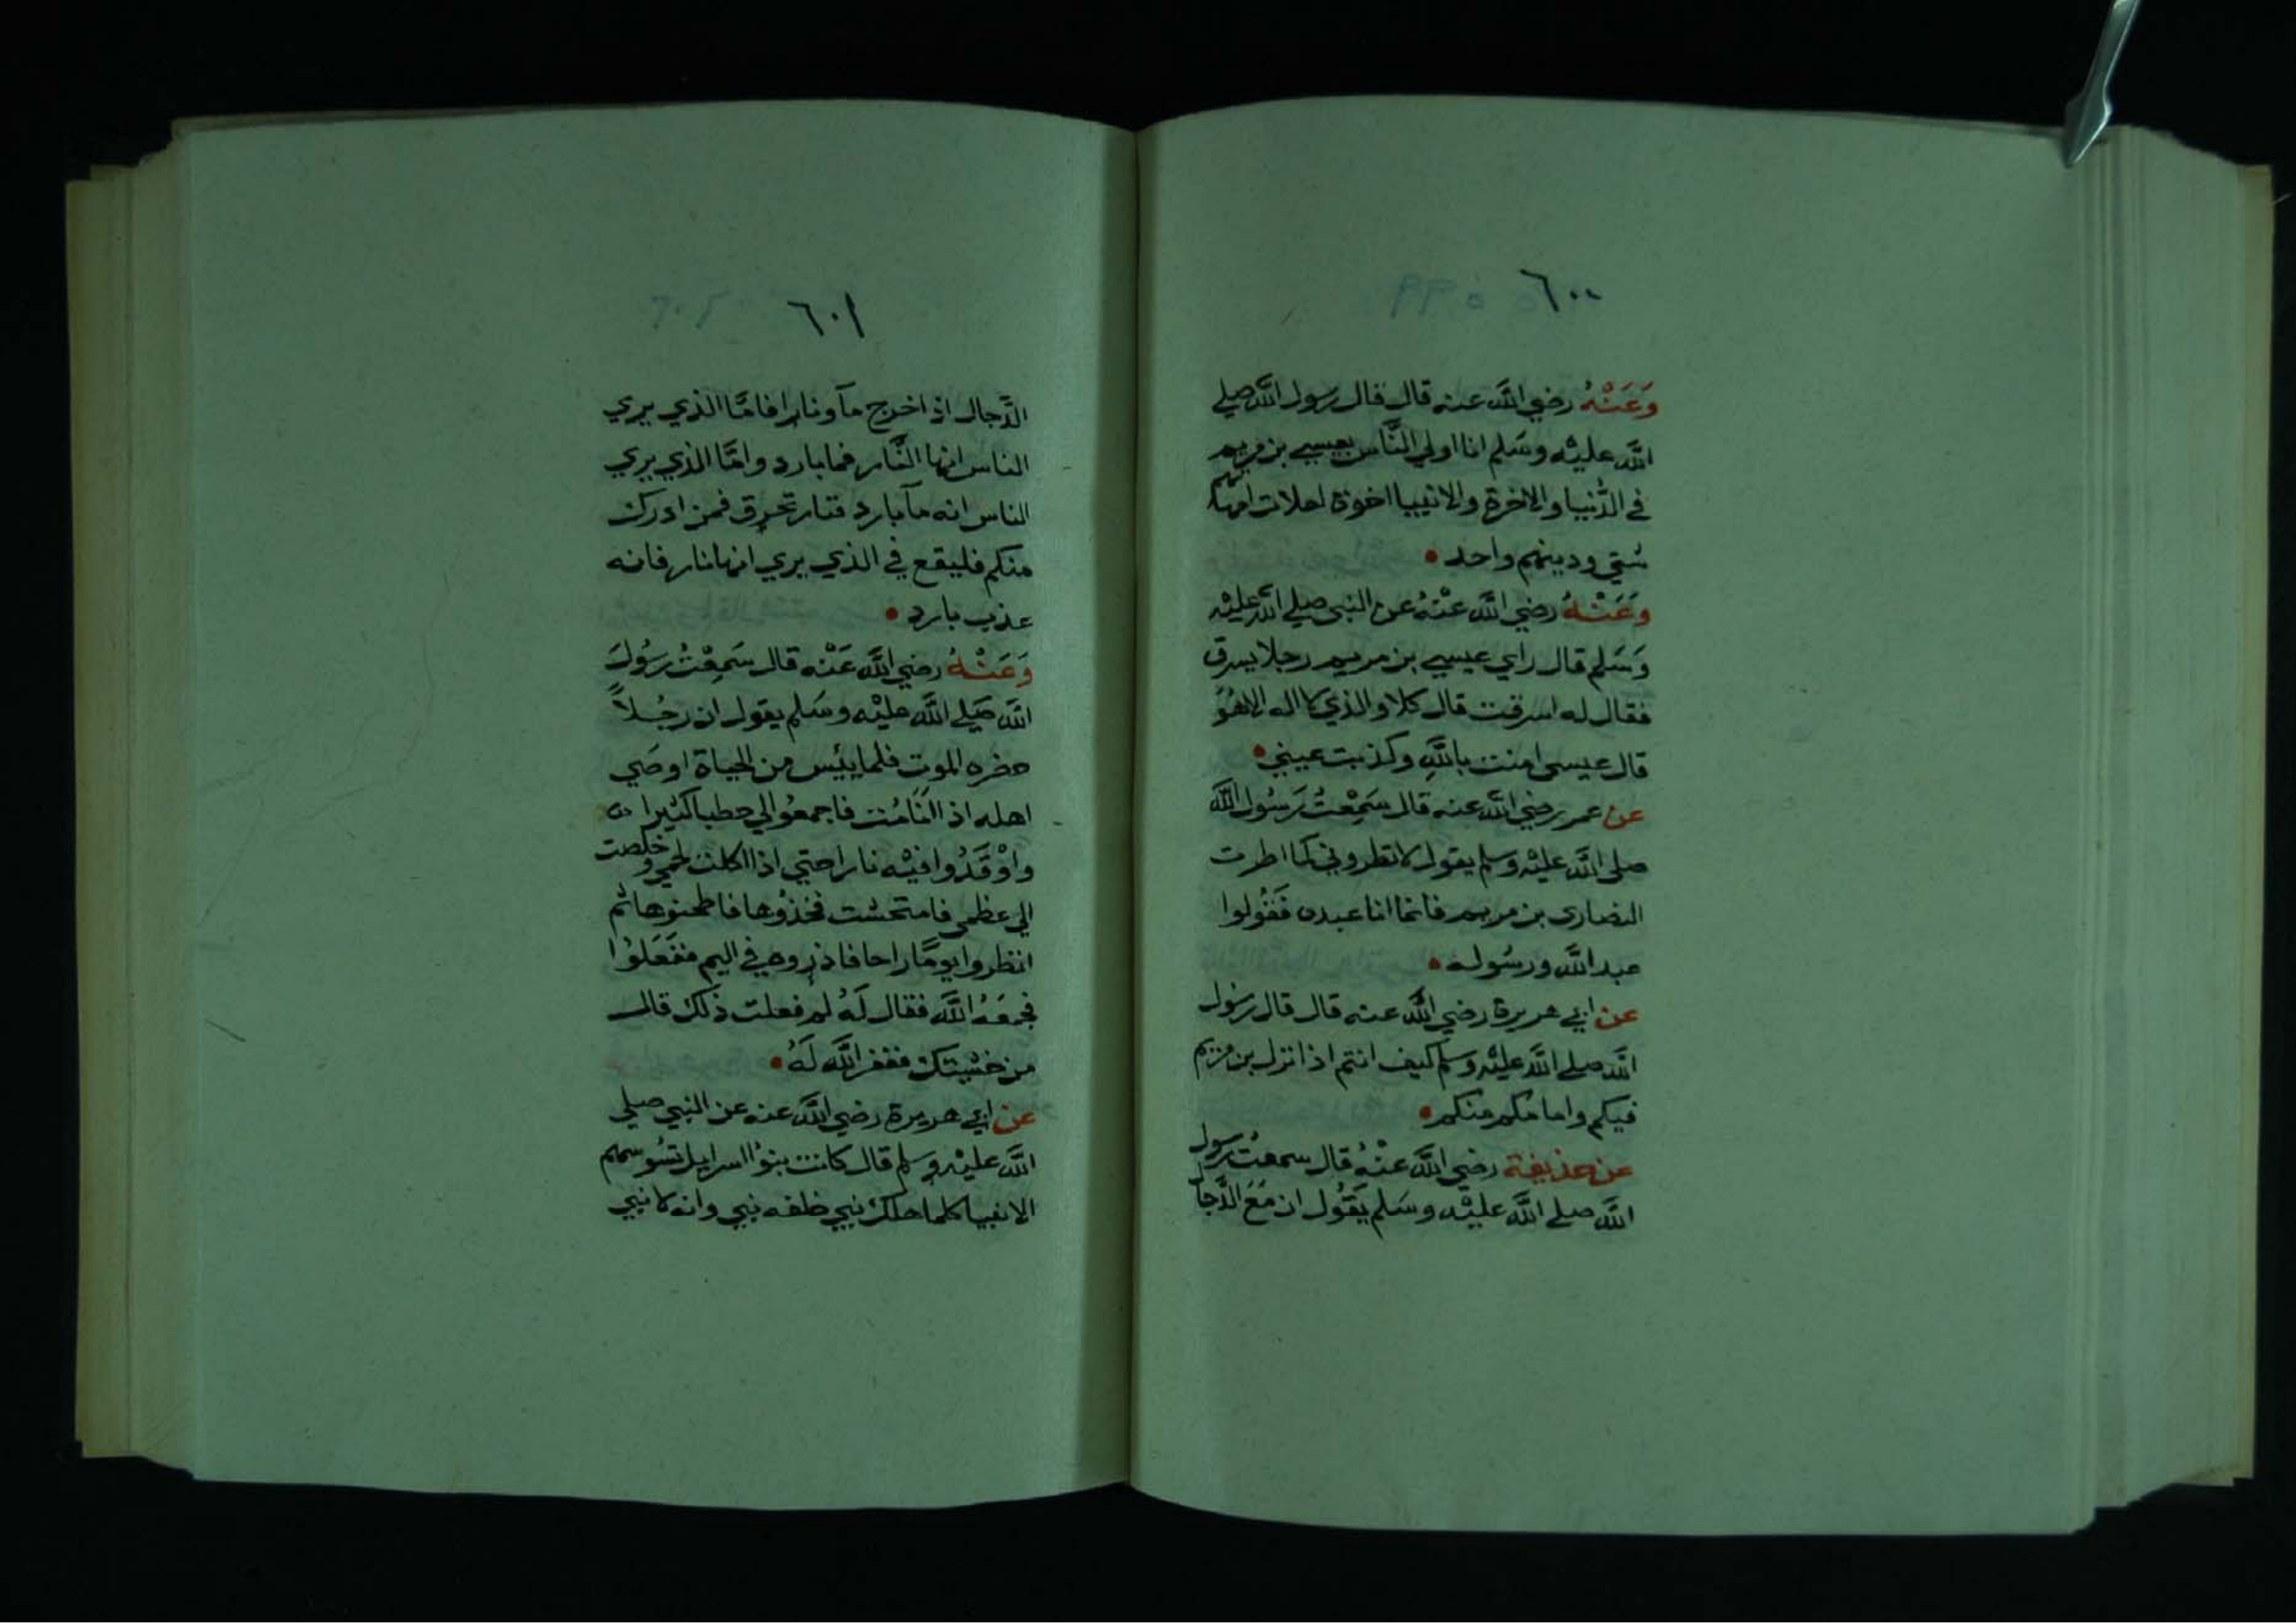 ٦٠٠
وَعَنْهُ رضي الله عنه قال قال رسول الله صلي
الله عليْه وسَلم انا اولي النَّاس بعيسي بن مريم
في الدُّنيا والاخرة والانبيا اخوة لعلات امهاتهم
شتي ودينهم واحد
وَعَنْهُ رضي الله عنْهُ عن النبي صلي الله عليْه
وَسَلم قال راي عيسي بن مريم رجلا يسرق
فقال له اسرقت قال كلا والذي لا اله الا هُوَ
قال عيسى امنت باللهِ وكذبت عيني
عن عمر رضي الله عنه قال سَمِعْتُ رَسُول الله
صلى الله عليْه وَسلم يقول لا تطروني كما اطرت
النصارى بن مريم فانما انا عبده فَقُولوا
عبد الله ورسُوله
عن ابي هريرة رضي الله عنه قال قال رسُول
الله صلي الله عليْه وسلم كيف انتم اذا نزل بن مريم
فيكم وامامكم منكم
عن حذيفة رضي الله عنْهُ قال سمعتُ رسول
الله صلي الله عليْه وسَلم يَقُول ان مَعَ الدَّجال
٦٠١
الدَّجال اذ اخرج مآ ونارا فامَّا الذي يري
الناس انها النَّار فما بارد وامَّا الذي يري
الناس انه مآ بارد فنار تحرق فمن ادرك
منكم فليقع في الذي يري انها نار فانه
عذب بارد
وَعَنْهُ رضي الله عَنْه قال سَمِعْتُ رسُولَ
الله صَلي الله عليْه وسَلم يقول ان رجُلاً
حضره الموت فلما يئس من الحياة اوصَي
اهله اذا انامُت فاجمعُوا لي حطبا كثيرا
واوْقَدُوا فيْه نارا حتي اذا اكلت لحمي وخلصت
الي عظمي فامتحشت فخذُوها فاطحنوها ثم
انظروا يومًا راحا فاذروه في اليم ففَعَلوْا
فجمَعَهُ الله فقال لَهُ لم فعلت ذلك قال
من خشيتك فغفر الله لَهُ
عن ابي هريرة رضي الله عنه عن النبي صلي
الله عليْه وسلم قال كانت بنوا اسرايل تسُوسهم
الانبيا كلما هلك نبي خلفه نبي وانه لا نبي